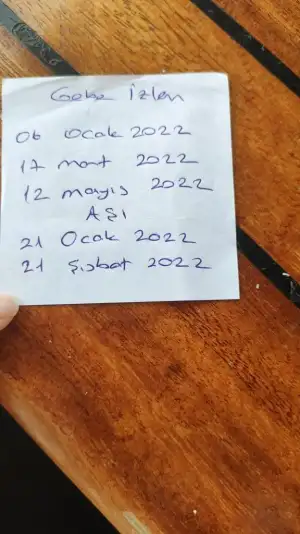 Gebe İzlem
06 Ocak 2022
17 mart 2022
12 mayıs 2022
AŞI
21 Ocak 2022
21 Şubat 2022